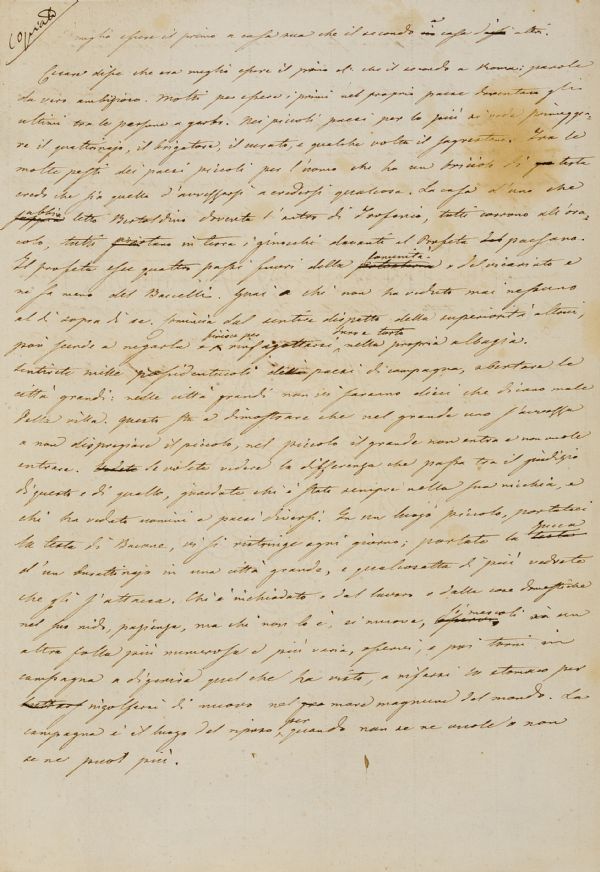 Copiato
meglio essere il primo a casa sua che il secondo in casa d' altri.
Cesare disse che era meglio essere il primo che il secondo a Roma: parole
da vero ambizioso. Molti per essere i primi nel proprio paese diventano gli
ultimi tra le persone a garbo. Nei piccoli paesi per lo più si vede primeggia-
re il quattrinajo, il brigatore, il curato, e qualche volta il sagrestano. Tra le
molte pesti dei paesi piccoli per l'uomo che ha un briciolo di testa
credo che sia quella d'avvezzarsi a credersi qualcosa. La casa d'uno che
abbia letto Bertoldino diventa l'antro di Trofonio, tutti corrono all'ora-
colo, tutti in terra i ginocchi davanti al Profeta paesano.
Il profeta esce quattro passi fuori della e del vicariato e
ne sa meno del Guai a chi non ha veduto mai nessuno
al di sopra di se. Comincia dal sentire dispetto della superiorità altrui,
poi scende a negarla e nella propria albagia.
Sentirete mille paesi di campagna, abortare le
città grandi: nelle città grandi non vi saranno dieci che dicano male
della villa. Questo sta a dimostrare che nel grande uno s'avvezza
a non dispregiare il piccolo, nel piccolo il grande non entra e non vuole
entrare. Se volete vedere la differenza che passa tra il giudizio
di questo e di quello, guardate chi è stato sempre nella sua nicchia, e
chi ha veduto uomini e paesi diversi. In un luogo piccolo, portateci
la testa di Bacone, vi si ristringe ogni giorno; portate la zucca
d'un in una città grande, e qualcosetta di più vedrete
che gli s'attacca. Chi è inchiodato e dal lavoro e dalle cose domestiche
nel suo nido, pazienza, ma chi non lo è, si muova, si mescoli con un
altra folla più numerosa e più varia, osservi, e poi torni in
campagna a digerire quel che ha visto, a rifarsi lo stomaco per
rigolfarsi di nuovo nel mare magnum del mondo. La
campagna è il luogo del riposo, per quando non se ne vuole o non
se ne può più.